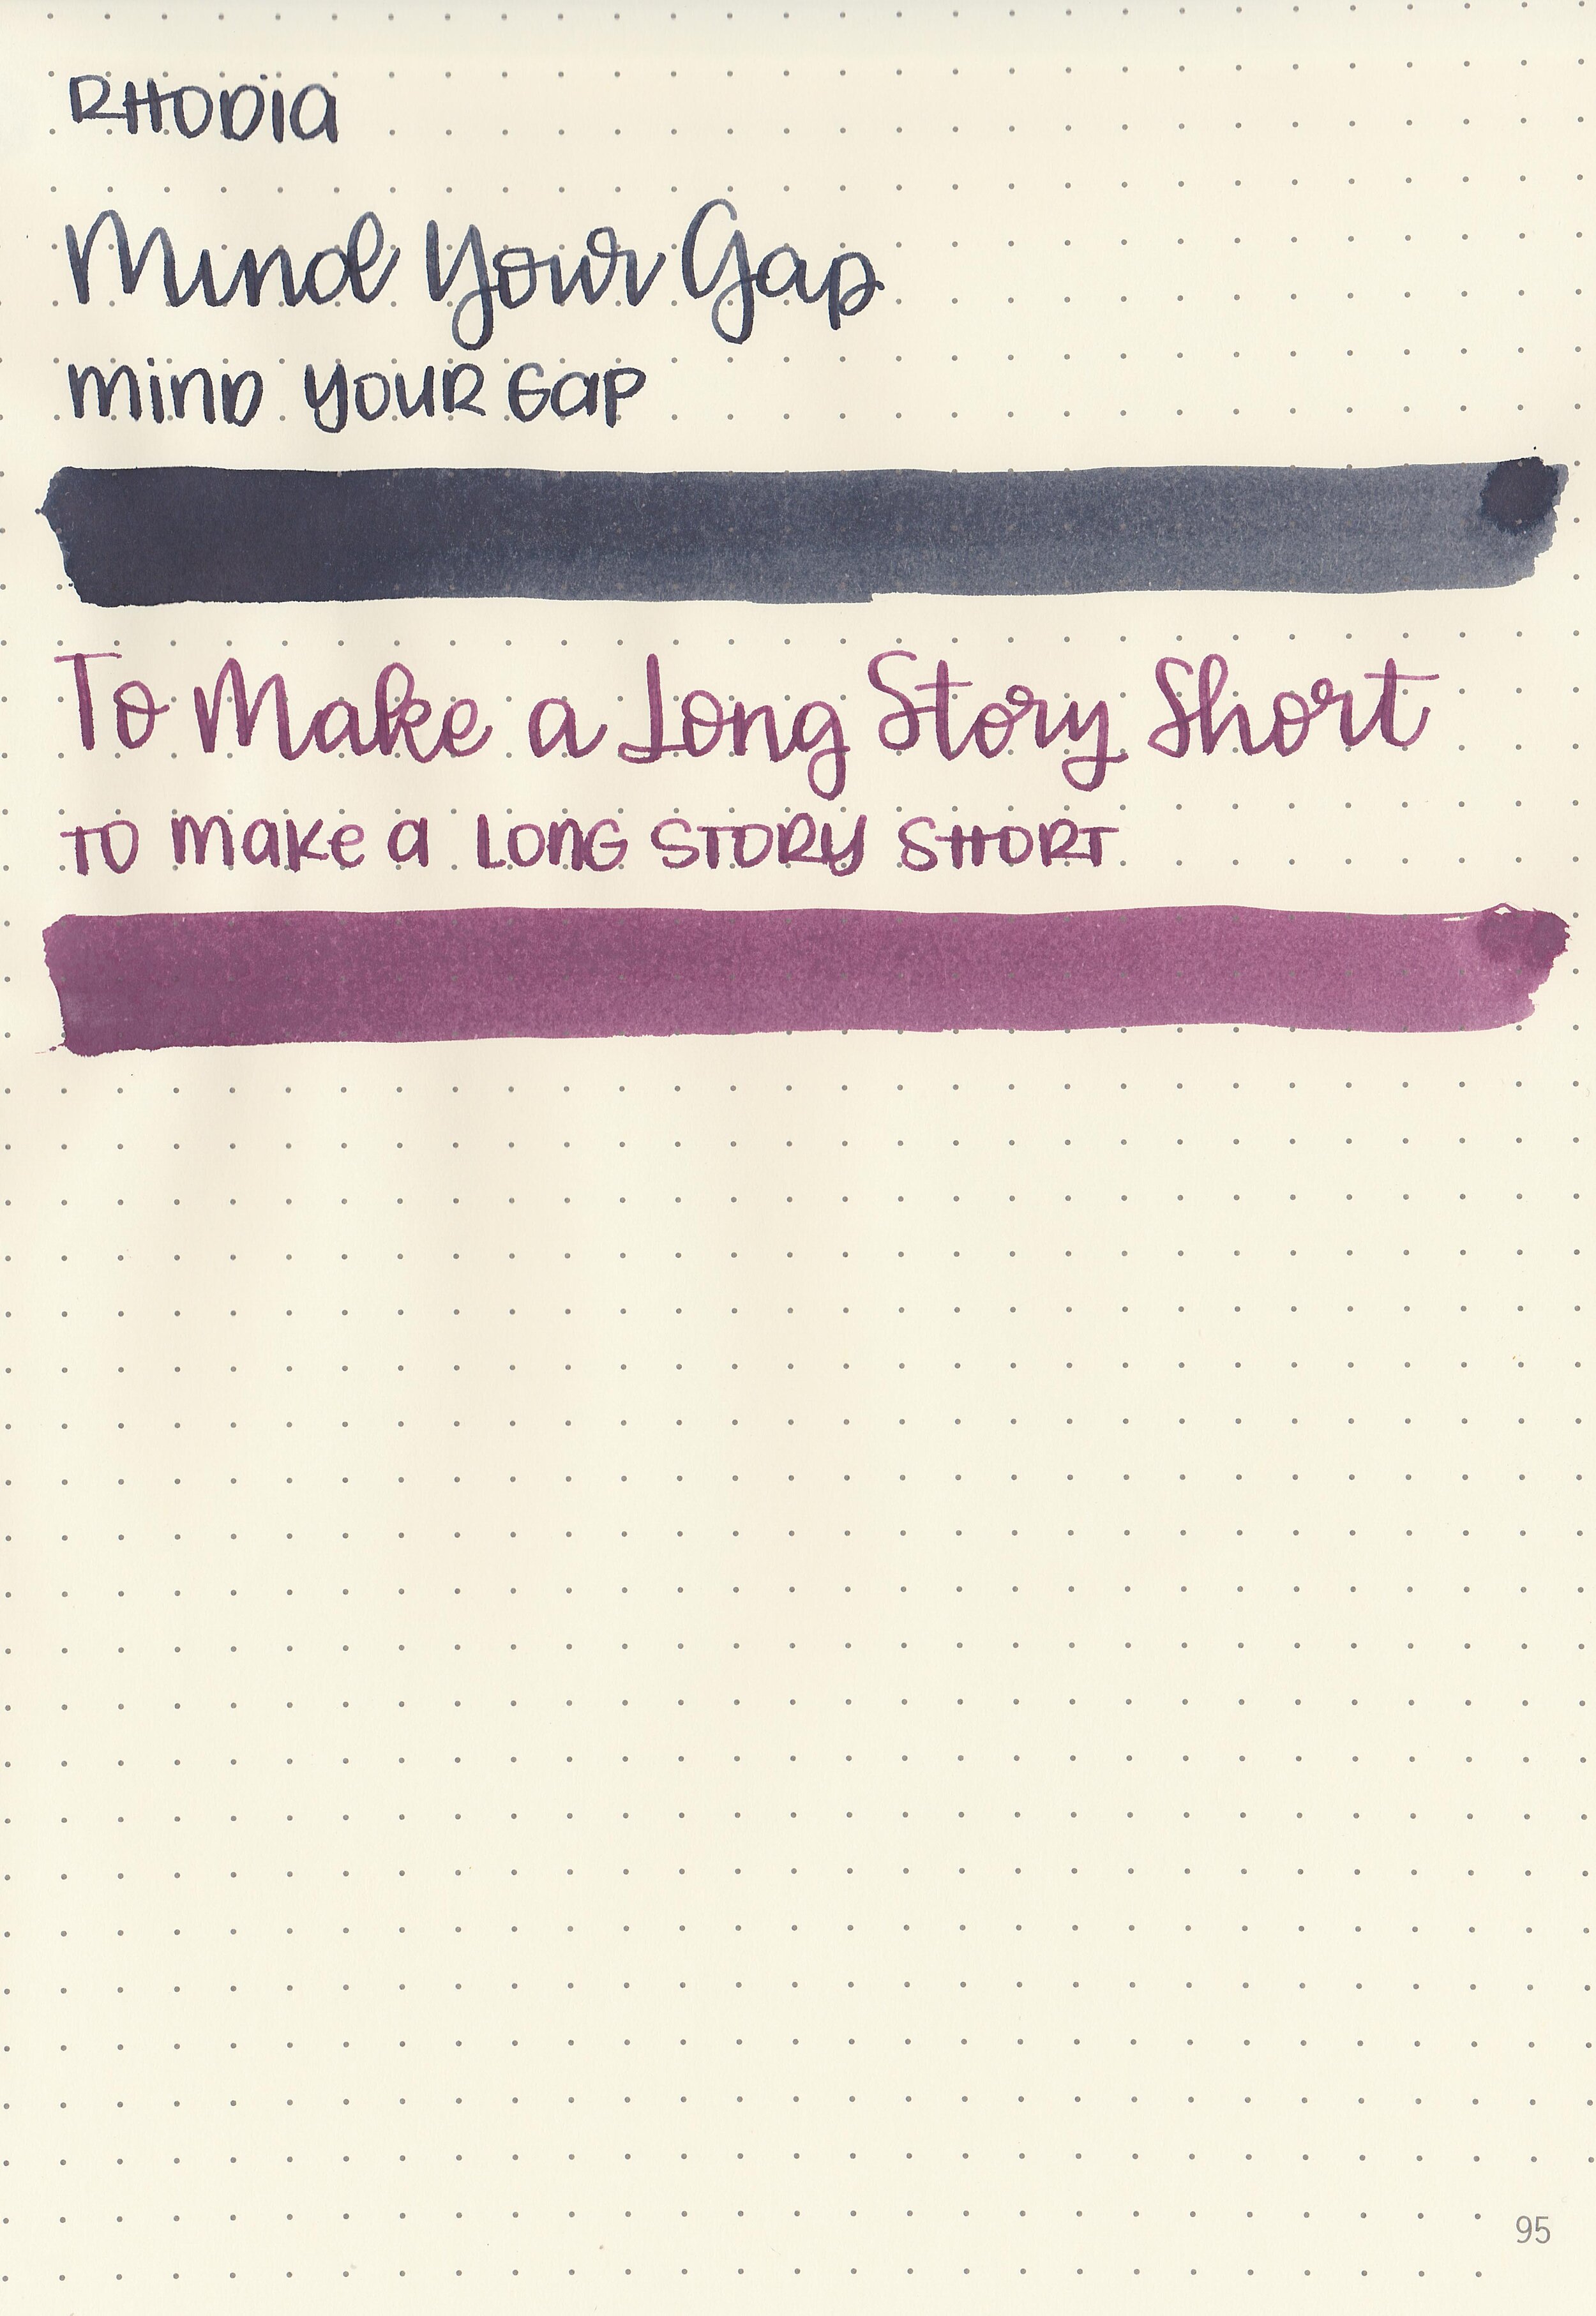 RHODIA
Mind Your Gap
MIND YOUR GAP
To Make a Long Story Short
TO MAKE A LONG STORY SHORT
95